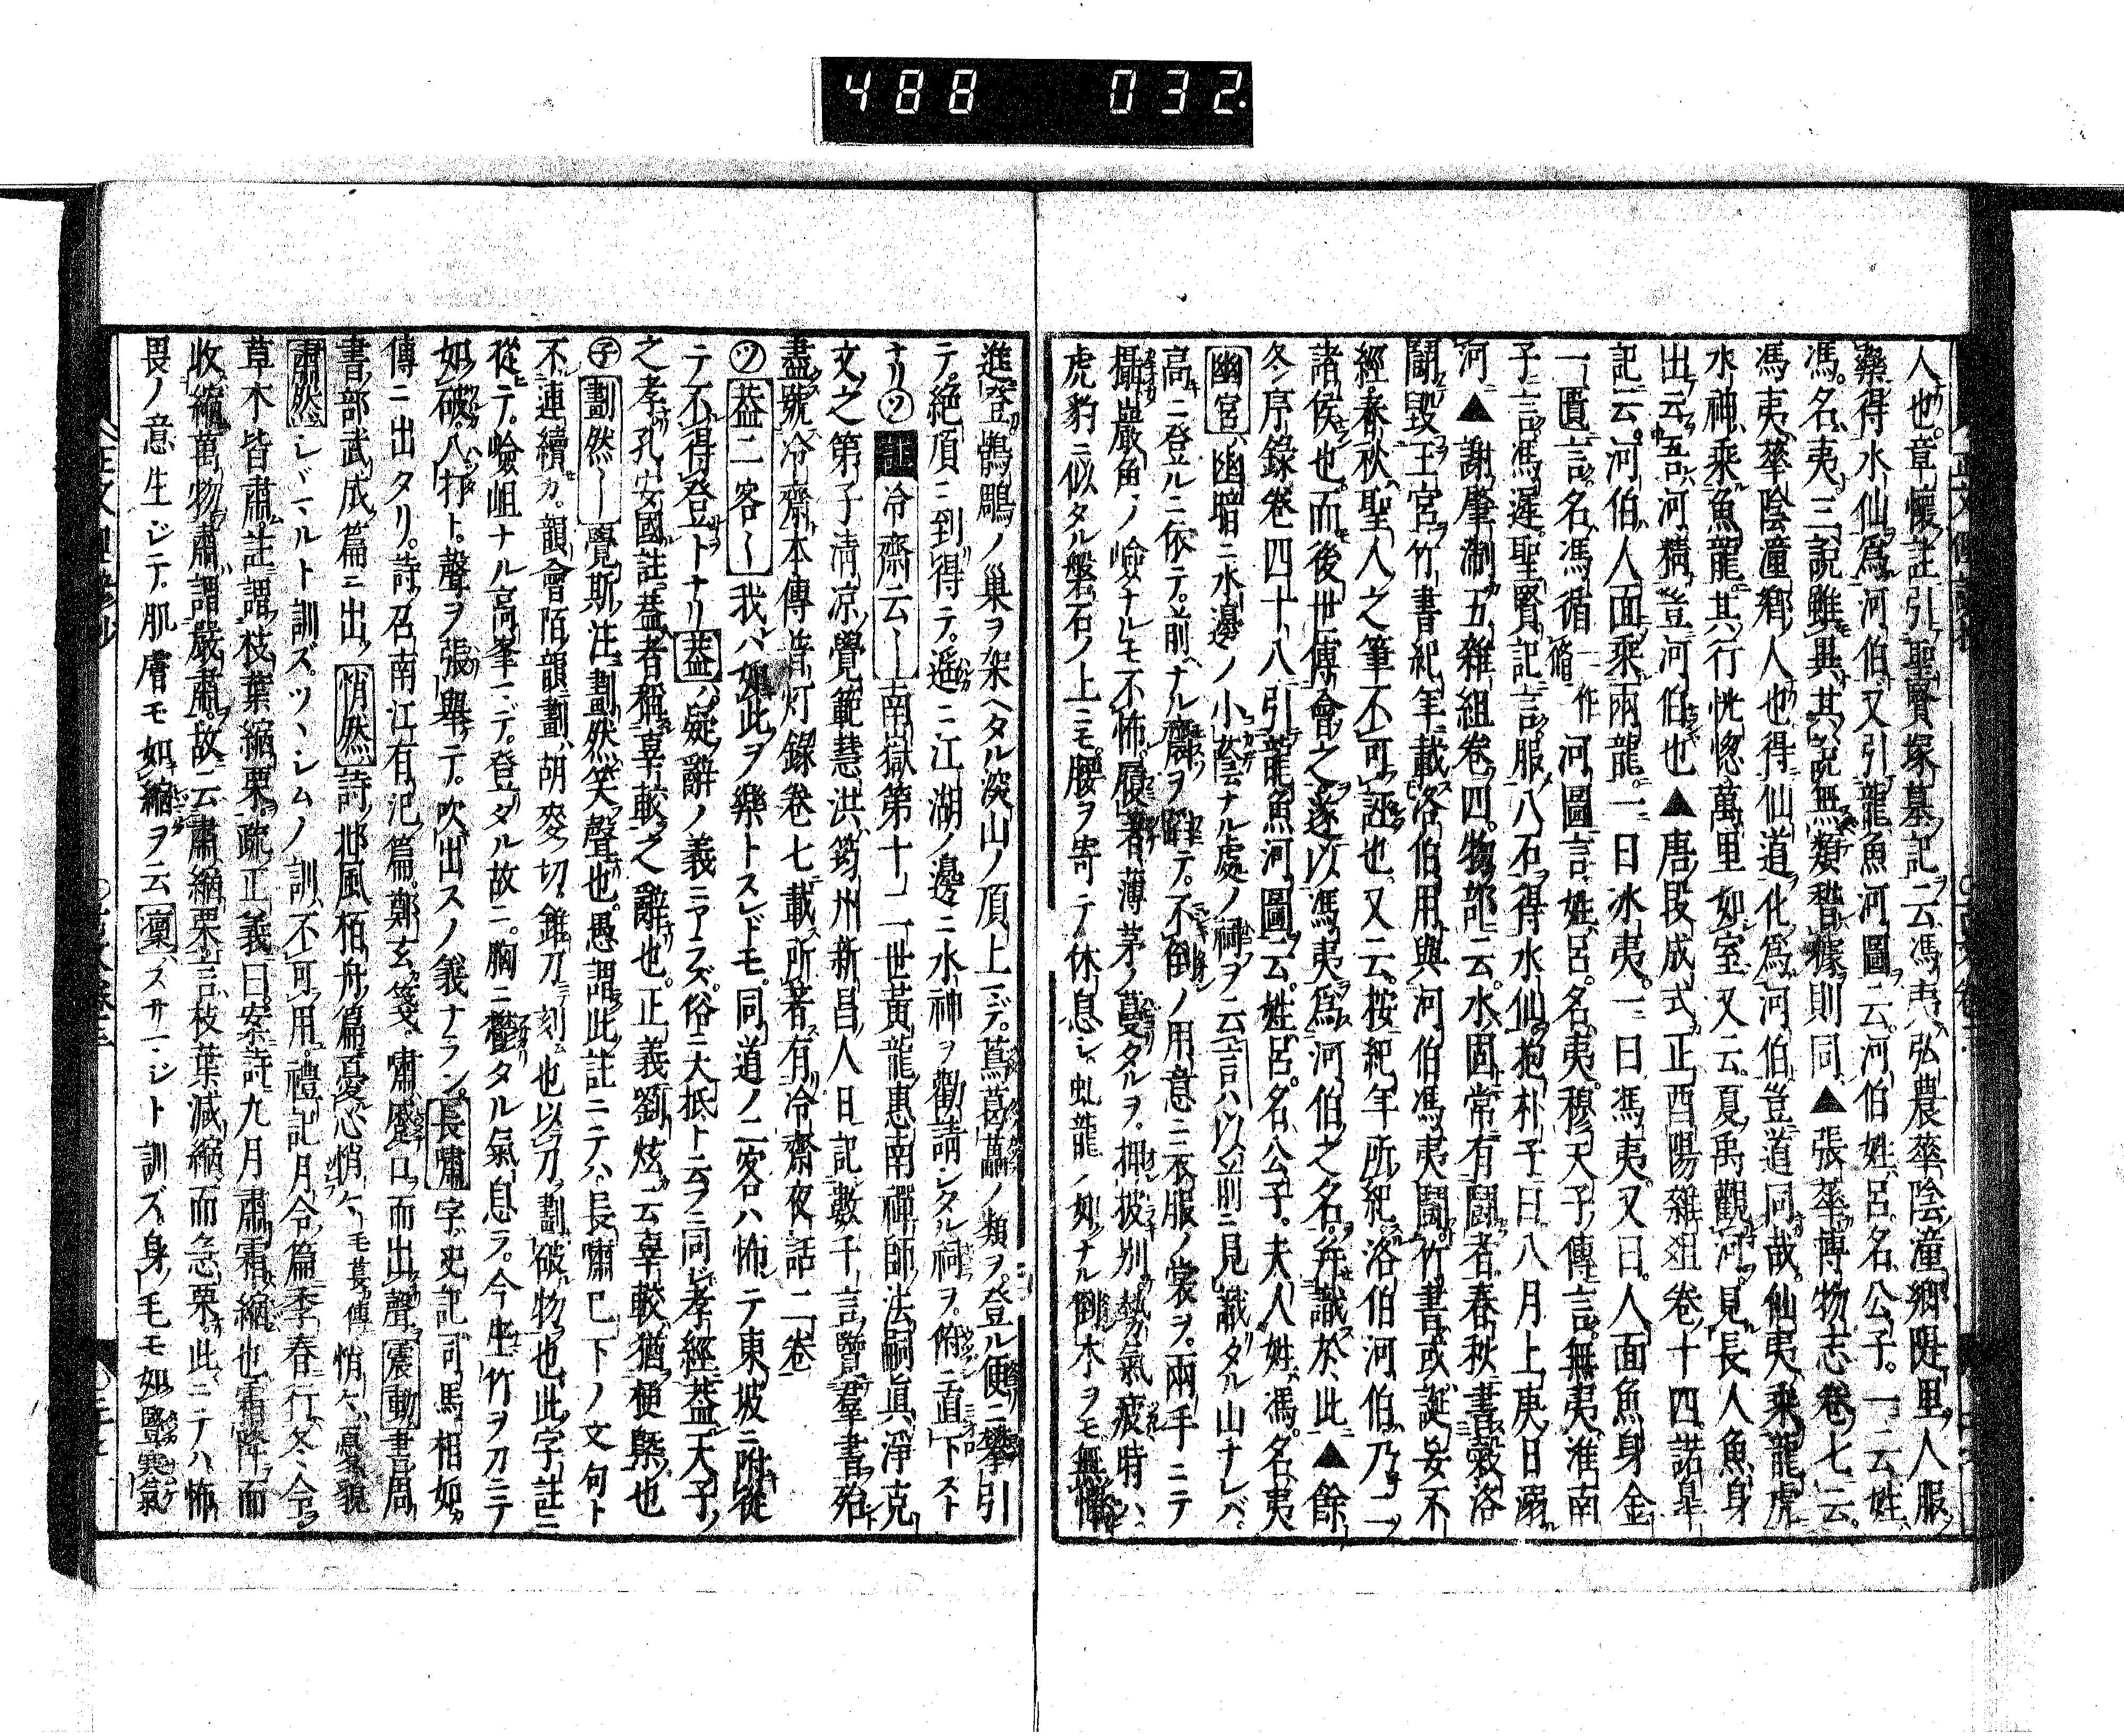 488 032.
人也章懷註引聖賢塚墓記云馮夷弘農華陰潼鄉隄里人服
藥得水仙爲河伯又引龍魚河圖云河伯姓呂名公子一云姓
馮名夷三說雖異其說無類稽據則同▲張華博物志卷七云
馮夷華陰潼鄕人也得仙道化爲河伯豈道同哉仙夷乘龍虎
水神乘魚龍其行恍惚萬里如室又云夏禹觀河見長人魚身
出云吾河精豈河伯也▲唐段成式酉陽雜俎卷十四諾皐
記云河伯人面乘兩龍一曰冰夷一曰馮夷又曰人面魚身金
一匱言名馮循一作脩河圖言姓呂名夷穆天子傳言無夷淮南
子言馮遲聖賢記言服八石得水仙抱朴子曰八月上庚日溺
河▲謝肇淛五雜組卷四物部云水固常有鬪者春秋書穀洛
鬪毀王宮竹書紀年載洛伯用與河伯馮夷鬪竹書或誕妄不
經春秋聖人之筆不可誣也又云按紀年所紀洛伯河伯乃二
諸侯也而後世傅會之遂以馮夷爲河伯之名弁識於此▲餘
冬序錄卷四十八引龍魚河圖云姓呂名公子夫人姓馮名夷
幽宮幽暗ニ水邊ノ小蔭ナル處ノ祠ヲ云言ハ以前ニ見識タル山ナレバ
高ニ登ルニ依テ前ナル齋ヲ テ不倒ノ用意ニ衣服ノ裳ヲ兩手ニテ
攝巖角ノ嶮ナルモ不怖履著薄茅ノ蔓タルヲ押披別勢氣疲時ハ
虎豹ニ似タル盤石ノ上ニモ腰ヲ寄テ休息シ虬龍ノ如ナル倒木ヲモ無憚
進登鶻鵰ノ巢ヲ架ヘタル深山ノ頂上マデ蔦葛藟ノ類ヲ登ル便ニ攀引
テ絶頂ニ到得テ遥ニ江湖ノ邊ニ水神ヲ勸請シタル祠ヲ俯ニ直下スト
ナリ ツ 註 冷齋云〜南嶽第十二世黃龍惠南禪師法嗣眞淨克
文之第子清凉覺範慧洪筠州新昌人日記數千言覽羣書殆
盡號冷齋本傳普灯錄卷七載所著有冷齋夜話二卷
ツ 葢二客〜我ハ如此ヲ樂トスレドモ同道ノ二客ハ怖テ東坡ニ附從
テ不得登トナリ 葢ハ疑辭ノ義ニアラズ俗ニ大抵ト云フニ同ジ孝經葢天子ノ
之孝孔安國註葢者稱辜較之辭也正義劉炫云辜較猶梗槩也
子 劃然〜覺斯注劃然笑聲也愚謂此註ニテハ長嘯已下ノ文句ト
不連續カ韻會陌韻劃胡麥切錐刀刻也以刀劃破物也此字註ニ
從テ嶮岨ナル高峯マデ登タル故ニ胸ニ欝タル氣息ラ今坐竹ヲ刀ニテ
如破八打ト聲ヲ張舉テ吹出スノ義ナラン長嘯字史記司馬相如
傳ニ出タリ詩召南江有汜篇鄭玄箋嘯蹙口而出聲震動書周
書部武成篇ニ出 悄然詩邶風栢舟篇憂心悄々毛萇傳悄々憂貌
肅然シヾマルト訓ズツヽシムノ訓不可用禮記月令篇季春行冬令
草木皆肅註謂枝葉縮栗疏正義曰案詩九月肅霜縮也霜降而
收縮萬物肅謂嚴肅故云肅縮栗言枝葉減縮而急栗此ニテハ怖
畏ノ意生ジテ肌膚モ如縮ヲ云 凛スサマジト訓ズ身毛モ如豎寒氣